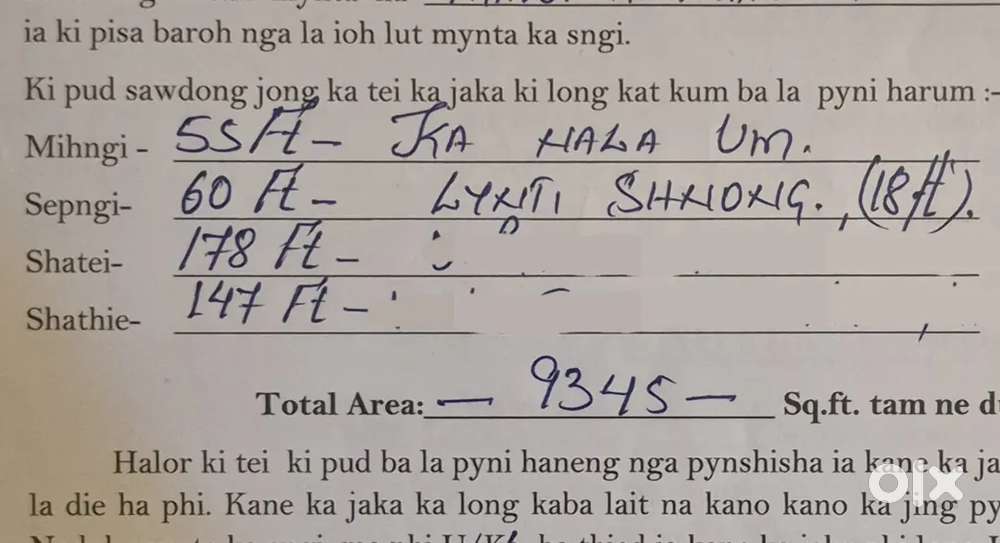 ia ki pisa baroh nga la ioh lut mynta ka sngi.
Ki pud sawdong jong ka tei ka jaka ki long kat kum ba la pyni harum :-
Mihngi - 55 Ft - KA HALA UM.
Sepngi- 60 Ft - LYNTI SHNONG. (18 ft).
Shatei- 178 Ft -
Shathie- 147 Ft -
Total Area: - 9345 - Sq.ft. tam ne
Halor ki tei ki pud ba la pyni haneng nga pynshisha ia kane ka
la die ha phi. Kane ka jaka ka long kaba lait na kano kano ka jing
olx